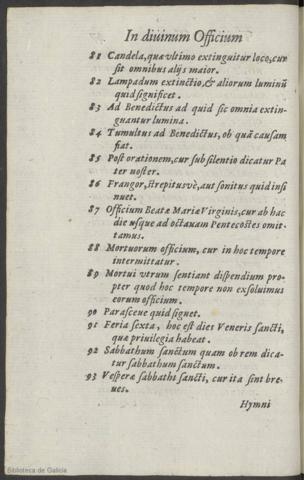 In diuinum Officium
81 Candela, quæ vltimo extinguitur loco, cur
sit omnibus alijs maior.
82 Lampadum extinctio, & aliorum luminũ
quid significet.
83 Ad Benedictus ad quid sic omnia extin-
guantur lumina.
84 Tumultus ad Benedictus, ob quã causam
fiat.
85 Post orationem, cur sub silentio dicatur Pa
ter noster.
86 Frangor, strepitusvè, aut sonitus quid insi
nuet.
87 Officium Beatæ Mariæ Virginis, cur ab hac
die vsque ad octauam Pentecostes omit-
tamus.
88 Mortuorum officium, cur in hoc tempore
intermittatur.
89 Mortui vtrum sentiant dispendium pro-
pter quod hoc tempore non exsoluimus
eorum officium.
90 Parasceue quid signet.
91 Feria sexta, hoc est dies Veneris sancti,
quæ priuilegia habeat.
92 Sabbathum sanctum quam ob rem dica-
tur sabbathum sanctum.
93 Vesperæ sabbathi sancti, cur ita sint bre-
ues.
Hymni
Biblioteca de Galicia